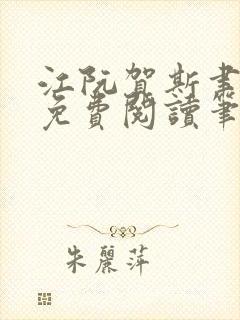 江阮賀斯書
免費閱讀筆
朱麗萍